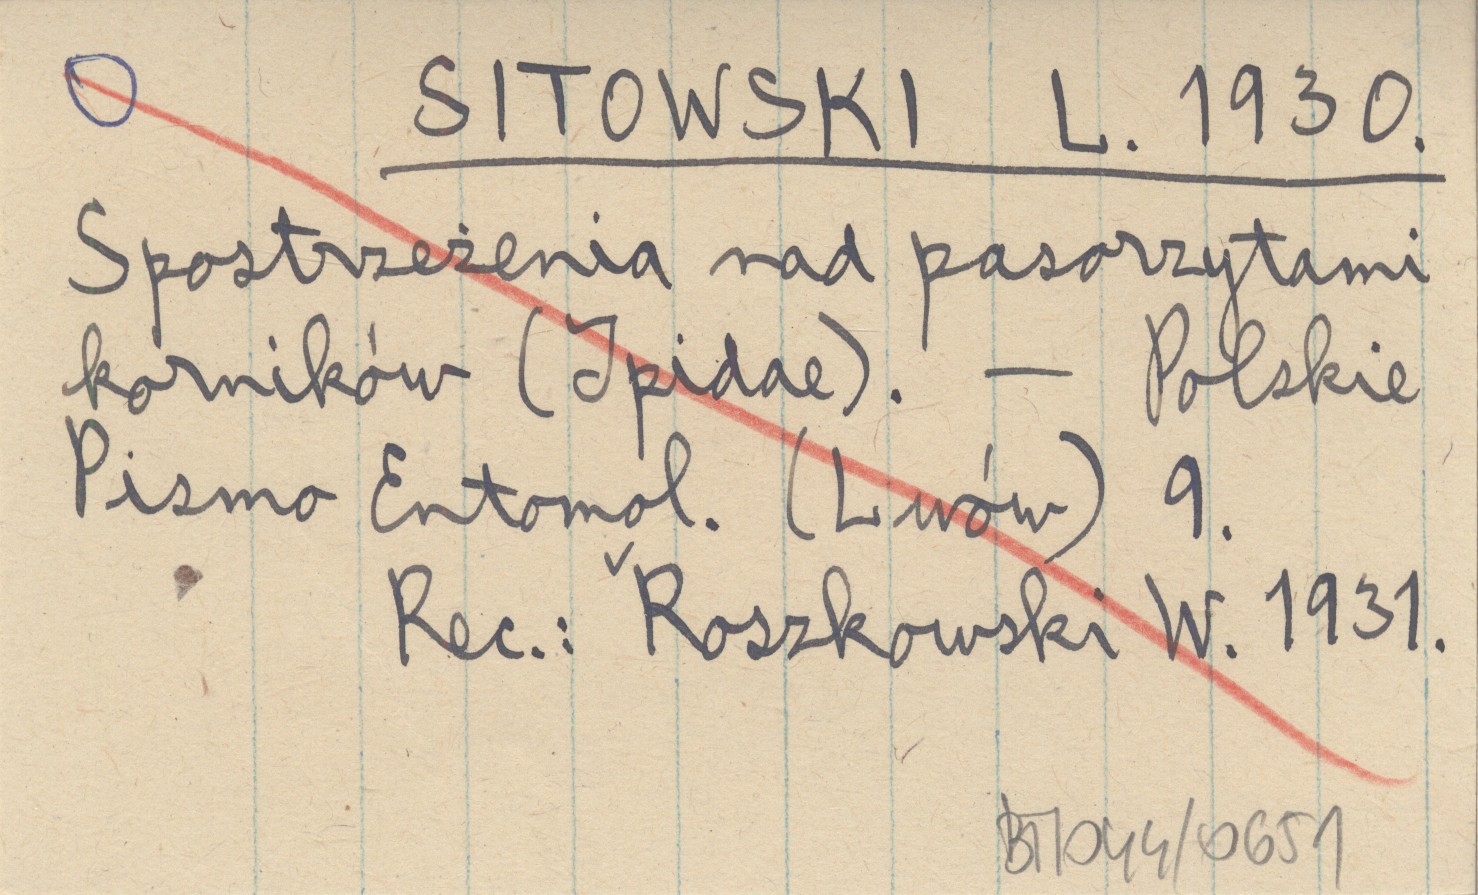 SITOWSKI L. 1930.
Spostrzeżenia nad pasorzytami
korników (Ipidae). — Polskie
Pismo Entomol. (Lwów) 9.
Rec.: ˅Roszkowski W. 1931.
BT/044/0651